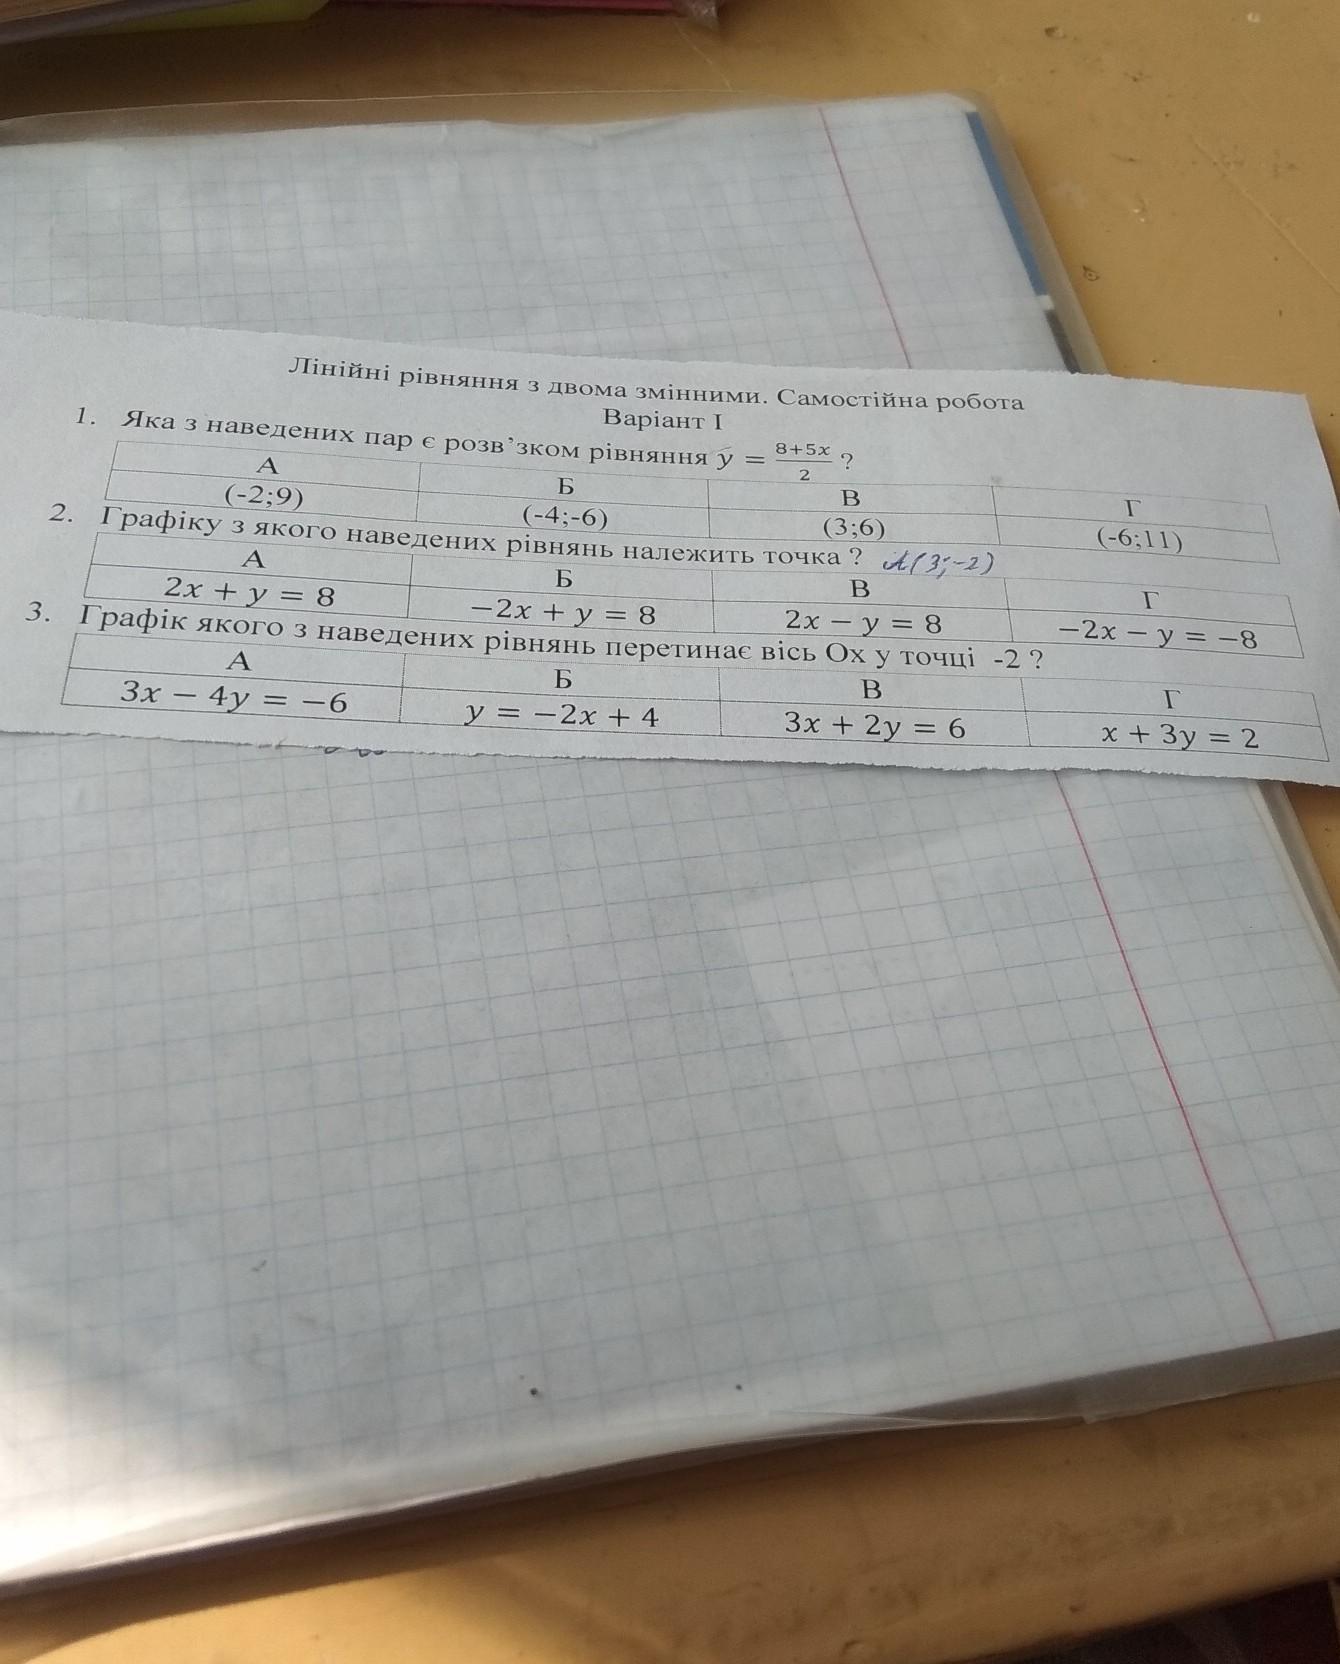 Лінійні рівняння з двома змінними. Самостійна робота
Варіант І
1. Яка з наведених пар є розв’зком рівняння y = (8+5x)/2 ?
А Б В Г
(-2;9) (-4;-6) (3;6) (-6;11)
2. Графіку з якого наведених рівнянь належить точка ? A(3;-2)
А Б В Г
2x + y = 8 −2x + y = 8 2x − y = 8 −2x − y = −8
3. Графік якого з наведених рівнянь перетинає вісь Ох у точці -2 ?
А Б В Г
3x − 4y = −6 y = −2x + 4 3x + 2y = 6 x + 3y = 2